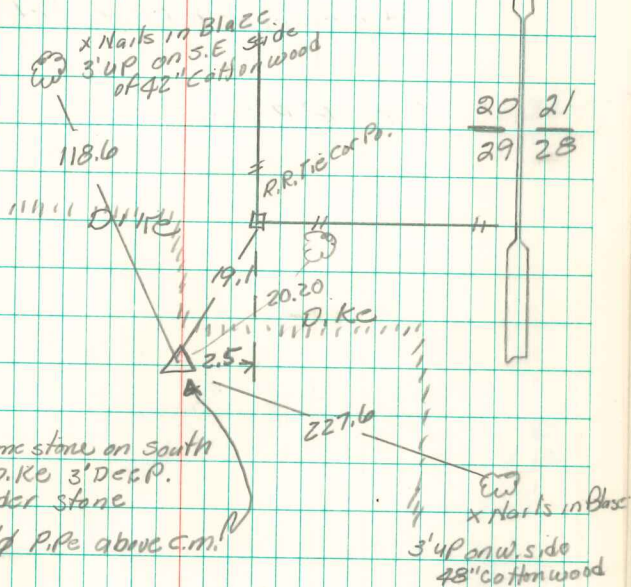 x Nails in Blaze
3' up on S.E side
of 42" Cottonwood
118.6
20 21
29 28
R.R. Tie Cor Po.
Dike
19.1
20.20
Dike
2.5
227.6
stone on South
D.Ke 3' DeeP.
stone
PiPe above c.m.
x Nails in Blaze
3' up on w. side
48" cottonwood